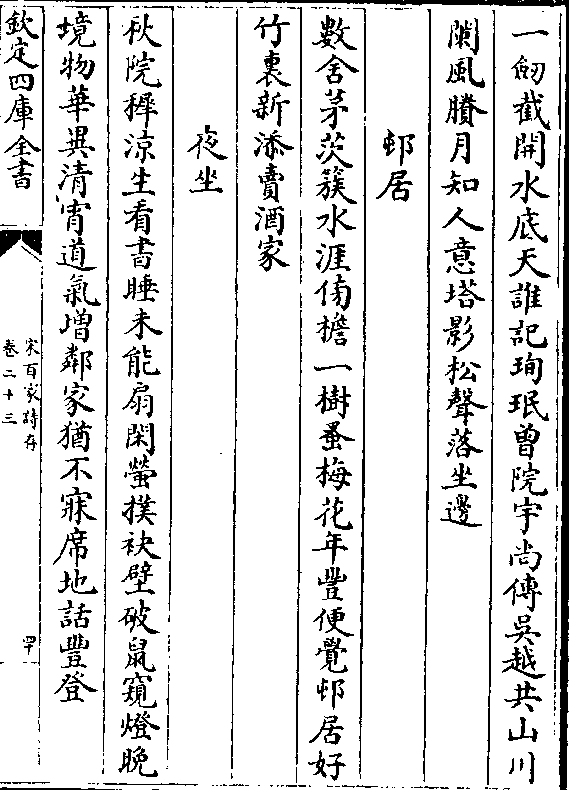 一劒截開水底天誰記珣珉曾院宇尚傳吳越共山川
闌風賸月知人意塔影松聲落坐邊
邨居
數舍茅茨簇水涯傍檐一樹蚤梅花年豐便覺邨居好
竹裏新添賣酒家
夜坐
秋院穉涼生看書睡未能扇閑螢撲袂壁破鼠窺燈晚
境物華異清宵道氣增鄰家猶不寐席地話豐登
欽定四庫全書
宋百家詩存
卷二十三